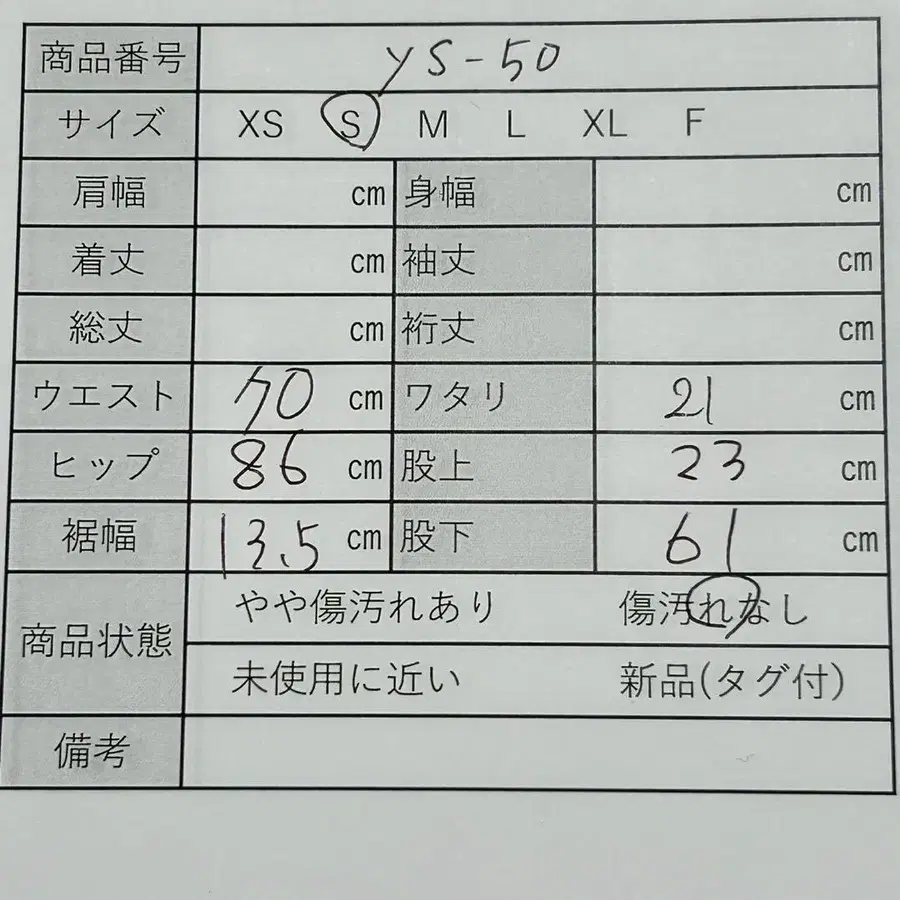 商品番号 YS-50
サイズ XS S M L XL F
肩幅 cm 身幅 cm
着丈 cm 袖丈 cm
総丈 cm 裄丈 cm
ウエスト 70 cm ワタリ 21 cm
ヒップ 86 cm 股上 23 cm
裾幅 13.5 cm 股下 61 cm
商品状態 やや傷汚れあり 傷汚れなし
未使用に近い 新品(タグ付)
備考